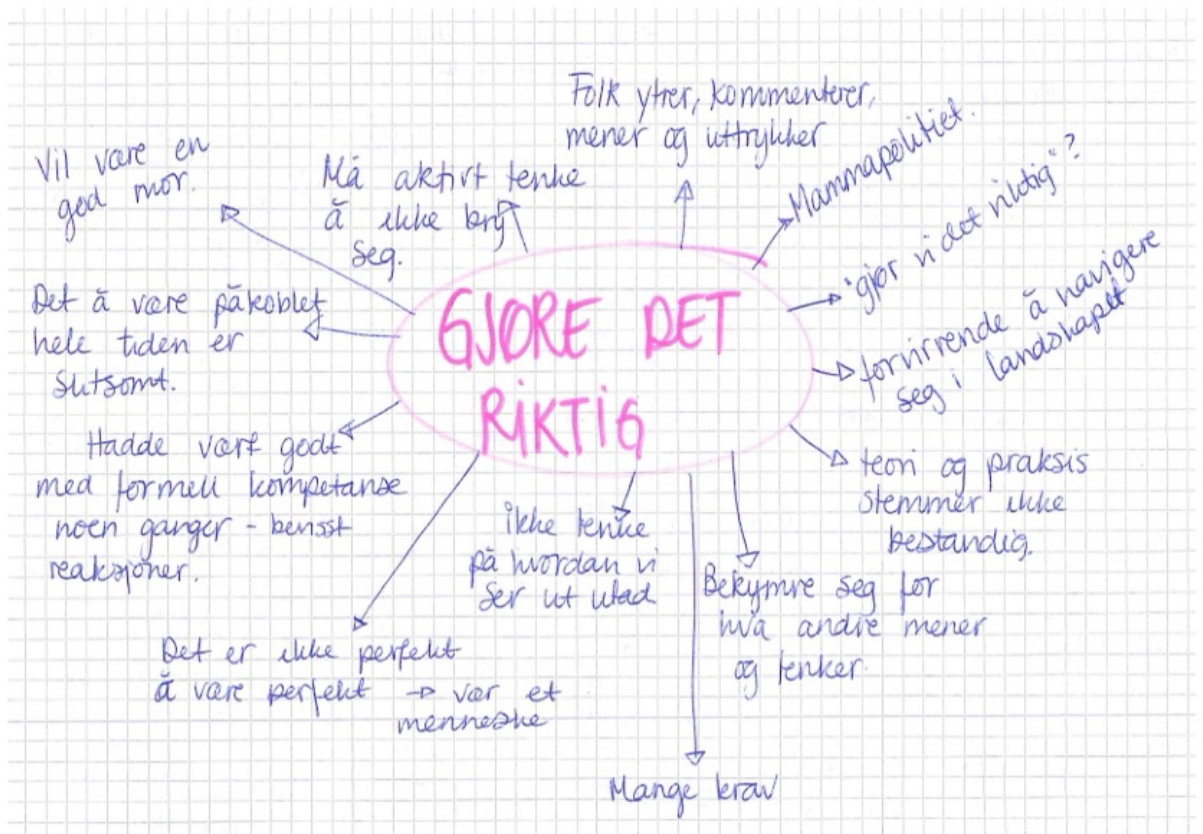 GJØRE DET
RIKTIG
Folk ytrer, kommenterer,
mener og uttrykker
Mammapolitiet.
"gjør vi det riktig"?
forvirrende å navigere
seg i landskapet
teori og praksis
stemmer ikke
bestandig.
Bekymre seg for
hva andre mener
og tenker.
Mange krav
ikke tenke
på hvordan vi
ser ut utad
Det er ikke perfekt
å være perfekt → vær et
menneske
Hadde vært godt
med formell kompetanse
noen ganger - bevisst
reaksjoner.
Det å være påkoblet
hele tiden er
slitsomt.
Vil være en
god mor.
Må aktivt tenke
å ikke bry
seg.